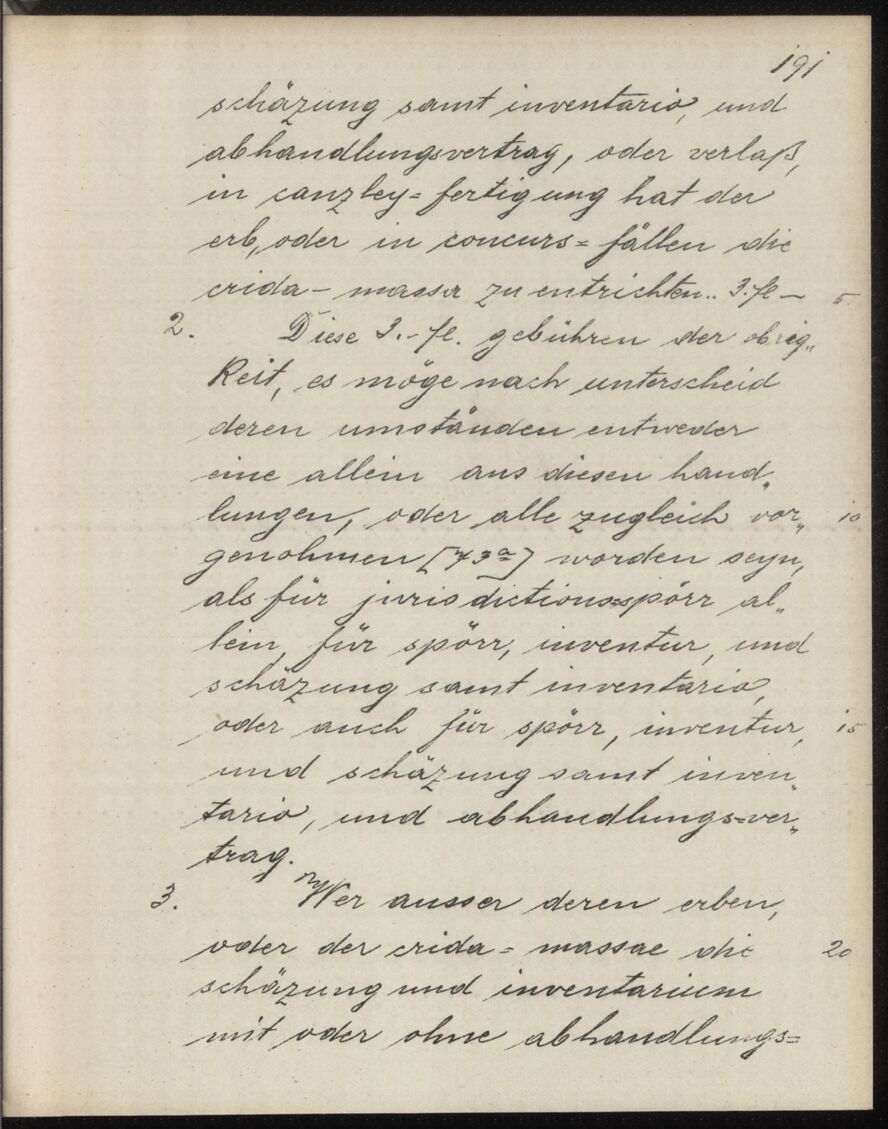 191
schäzung samt inventario, und
abhandlungsvertrag, oder verlaß,
in canzley= fertigung hat der
erb, oder in concurs= fällen die
crida- massa zu entrichten.. 3. fl - 5
2. Diese 3.- fl. gebühren der obrig„
keit, es möge nach unterscheid
deren umständen entweder
eine allein aus diesen hand„
lungen, oder alle zugleich vor„ 10
genohmen [73a] worden seyn,
als für jurisdictions=spörr al„
lein, für spörr, inventur, und
schäzung samt inventario,
oder auch für spörr, inventur, 15
und schäzung samt inven„
tario, und abhandlungs=ver„
trag.
3. Wer ausser deren erben,
oder der crida= massae die 20
schäzung und inventarium
mit oder ohne abhandlungs=